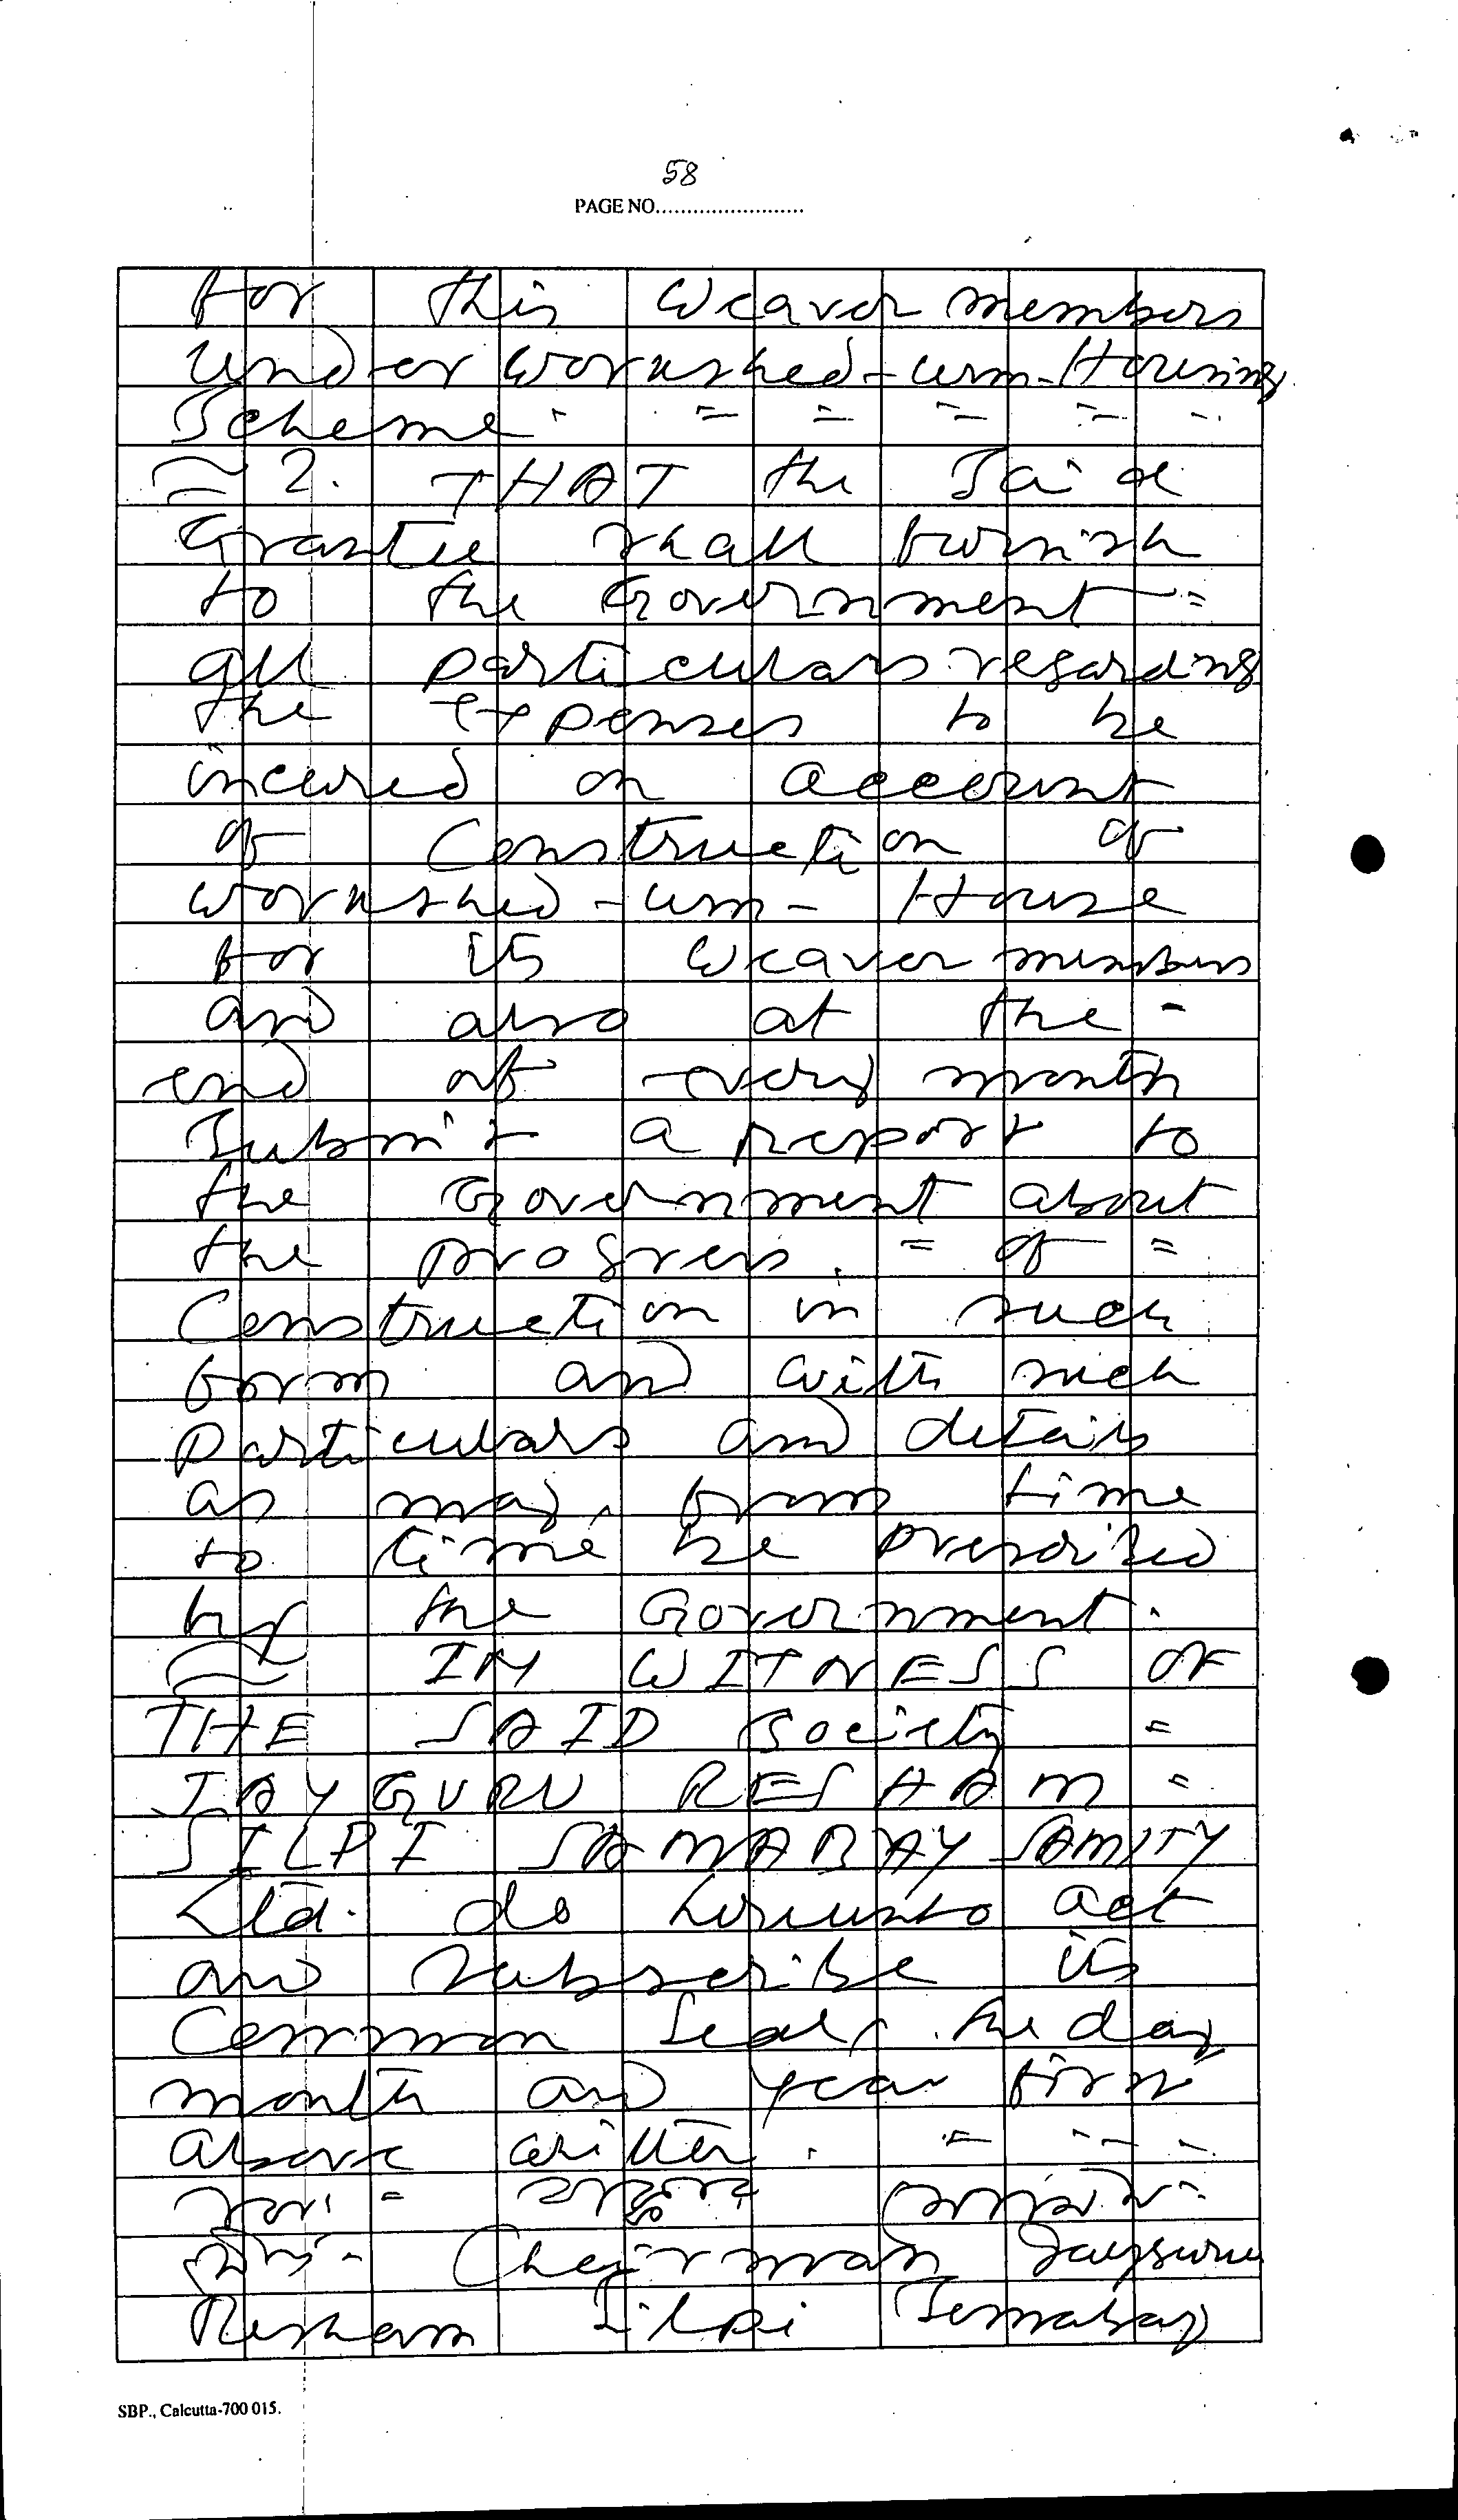 58
PAGE NO........................
for this Weaver members
under Workshed-cum-Housing
Scheme - = = = = =
= 2. THAT the Said
Grantee shall furnish
to the Government =
all particulars regarding
the expenses to be
incured on account
of Construction of
Workshed-cum-House
for its Weaver members
and also at the -
end of every month
Submit a report to
the Government about
the progress. = of =
Construction in such
form and with such
particulars and details
as may, from time
to time be prescribed
by the Government.
= IN WITNESS OF
THE SAID Society =
JAYGURU RESHAM =
SILPI SAMABAY SAMITY
Ltd. do hereunto act
and subscribe its
Common Seal, the day
month and year first
above written. = - -
Chairman Jayguru
Resham Silpi Samabay
SBP., Calcutta-700 015.